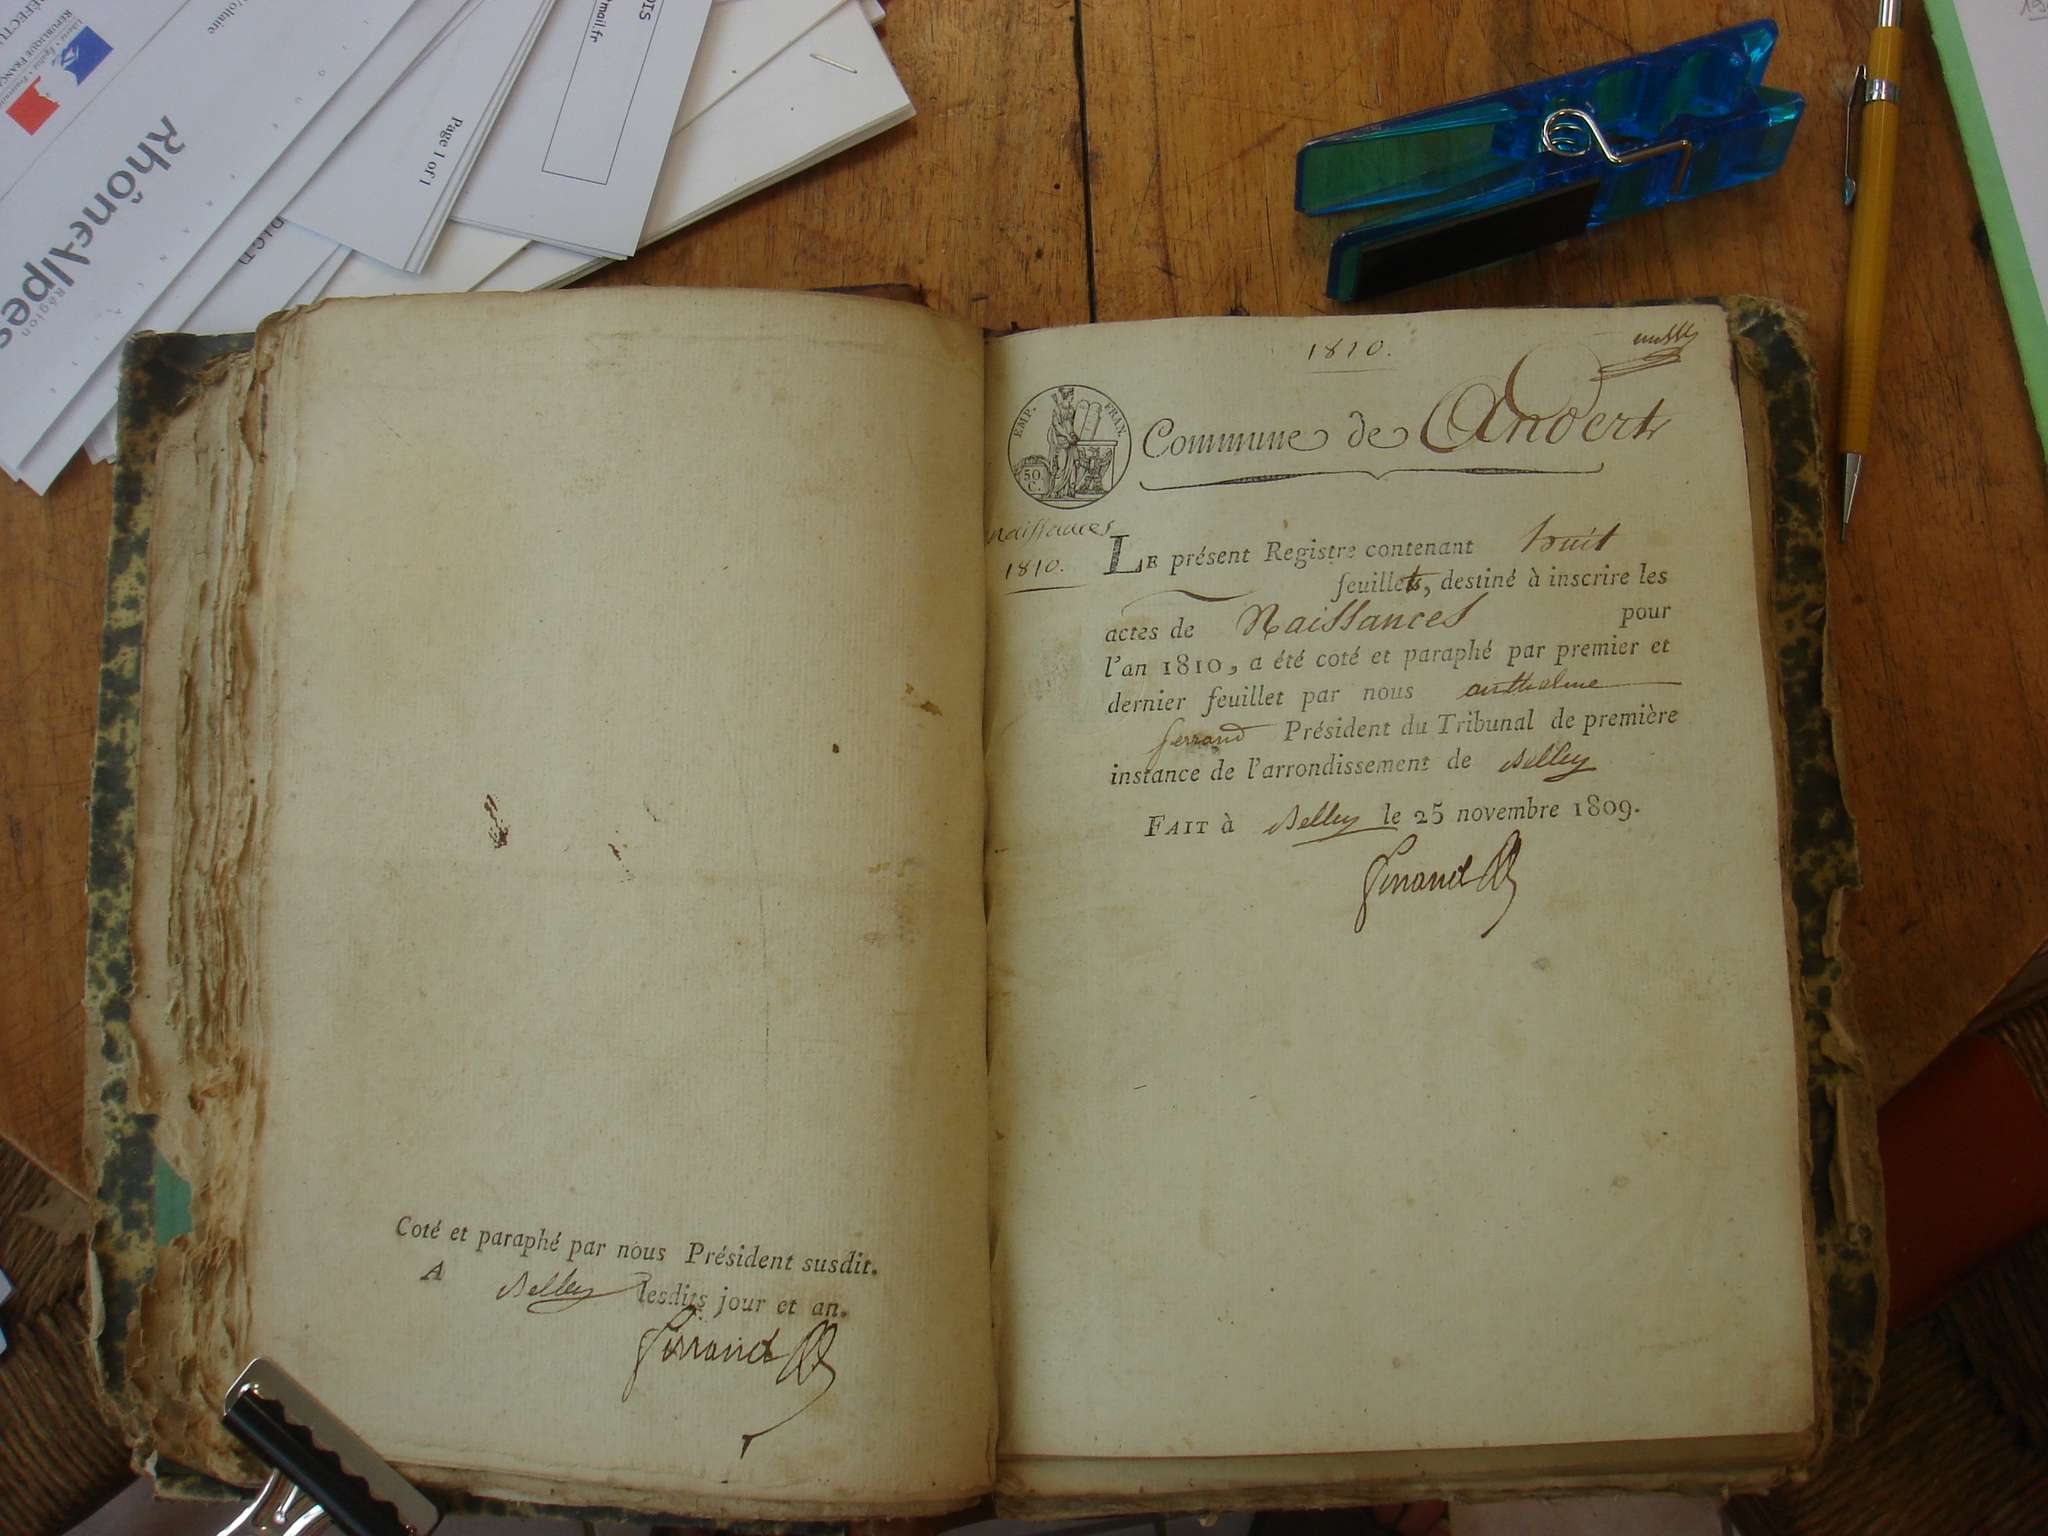 PRÉFECTU
Liberté • Égalité • Fraternité
RÉPUBLIQUE FRANÇA
Voltaire
Rhône-Alpes
Région
Page 1 of 1
OIS
mail.fr
Coté et paraphé par nous Président susdit.
A Belley lesdits jour et an.
Ferrand
1810.
EMP. FRAN.
50 C.
Commune de Andert
naissances
1810.
LE présent Registre contenant huit
feuillets, destiné à inscrire les
actes de Naissances pour
l'an 1810, a été coté et paraphé par premier et
dernier feuillet par nous anthelme
ferrand Président du Tribunal de première
instance de l'arrondissement de Belley
FAIT à Belley le 25 novembre 1809.
Ferrand